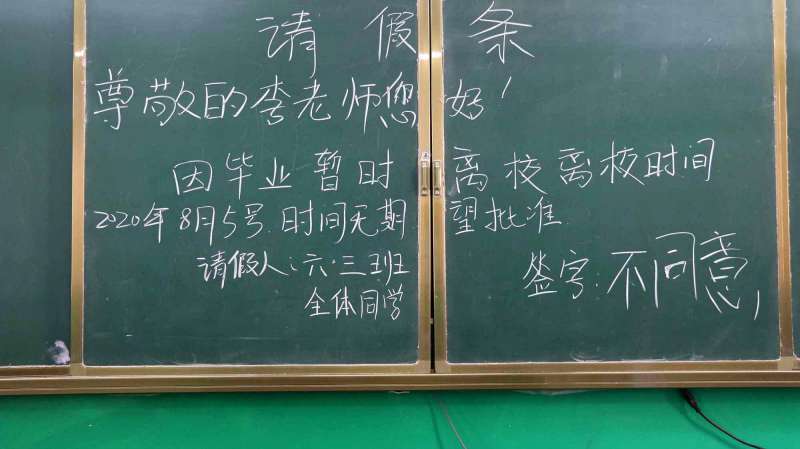 请假条
尊敬的李老师您好！
因毕业暂时离校离校时间
2020年8月5号.时间无期望批准
请假人：六·三班
全体同学
签字：不同意，